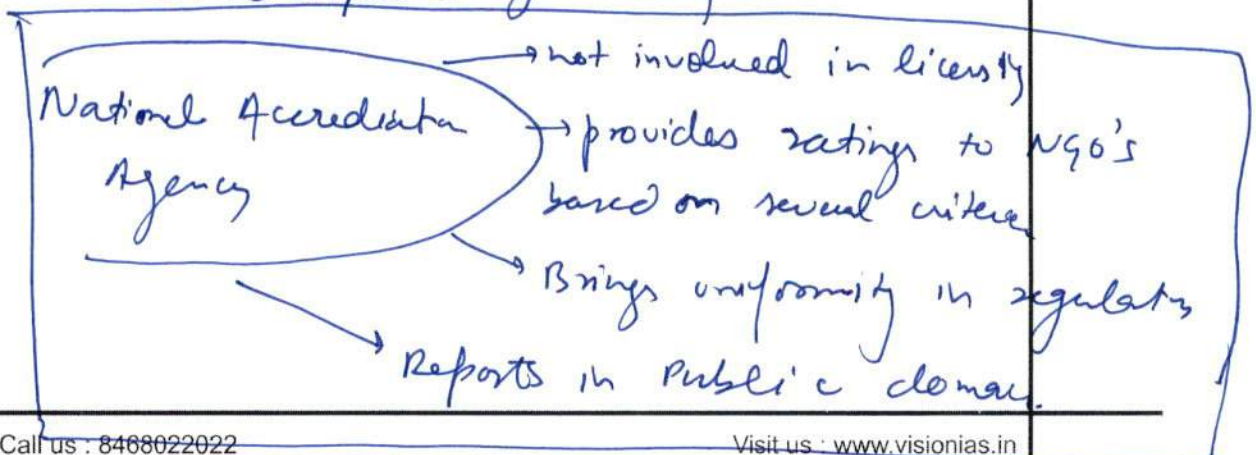 → not involved in licensing
National Accrediation
Agency
→ provides ratings to NGO's
based on several criteria
→ Brings uniformity in regulation
→ Reports in Public domain.
Call us : 8468022022
Visit us : www.visionias.in